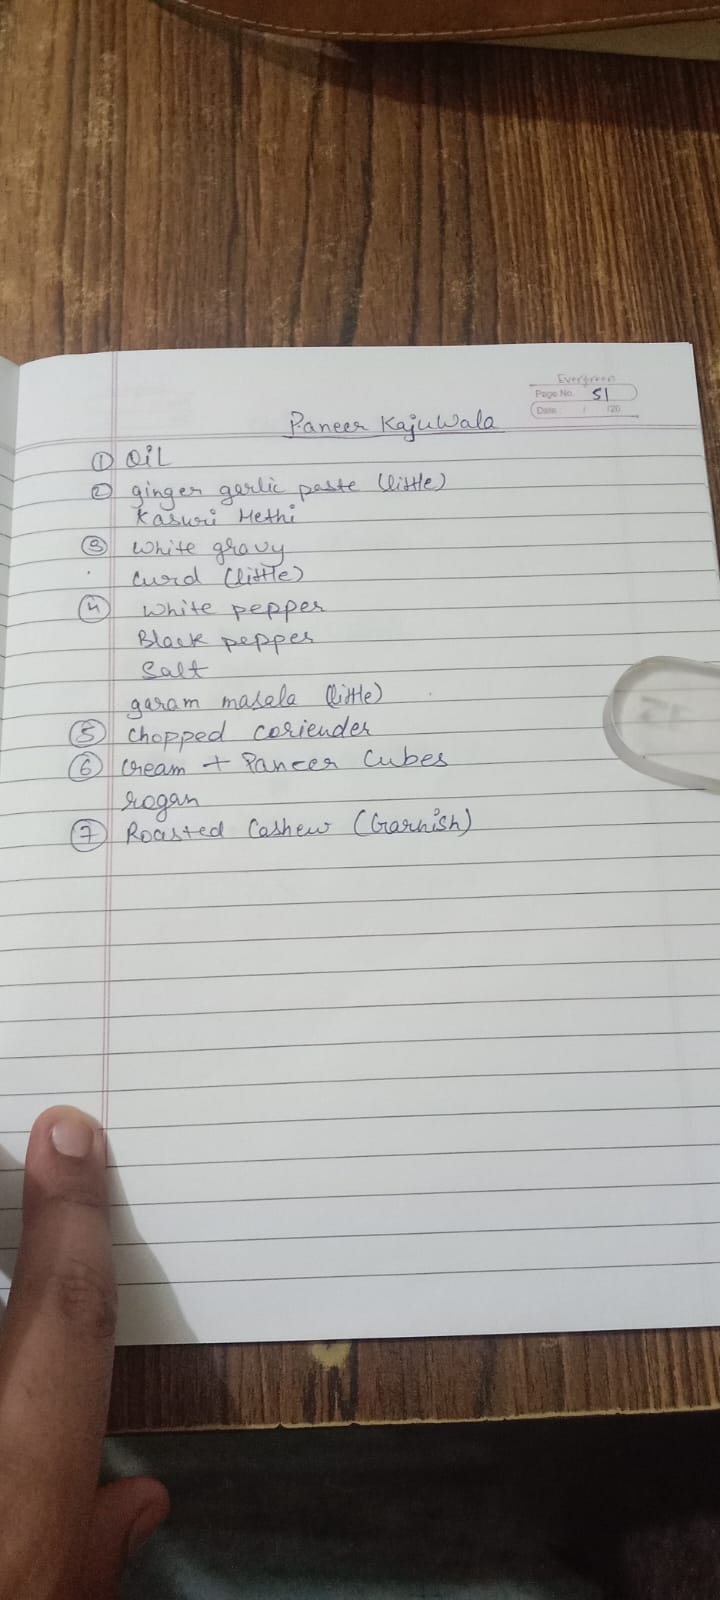 Evergreen
Page No. 51
Date: / /20
Paneer Kajuwala
① Oil
② ginger garlic paste (little)
Kasuri Methi
③ White gravy
Curd (little)
④ White pepper
Black pepper
Salt
garam masala (little)
⑤ Chopped coriender
⑥ Cream + Paneer Cubes
rogan
⑦ Roasted Cashew (Garnish)